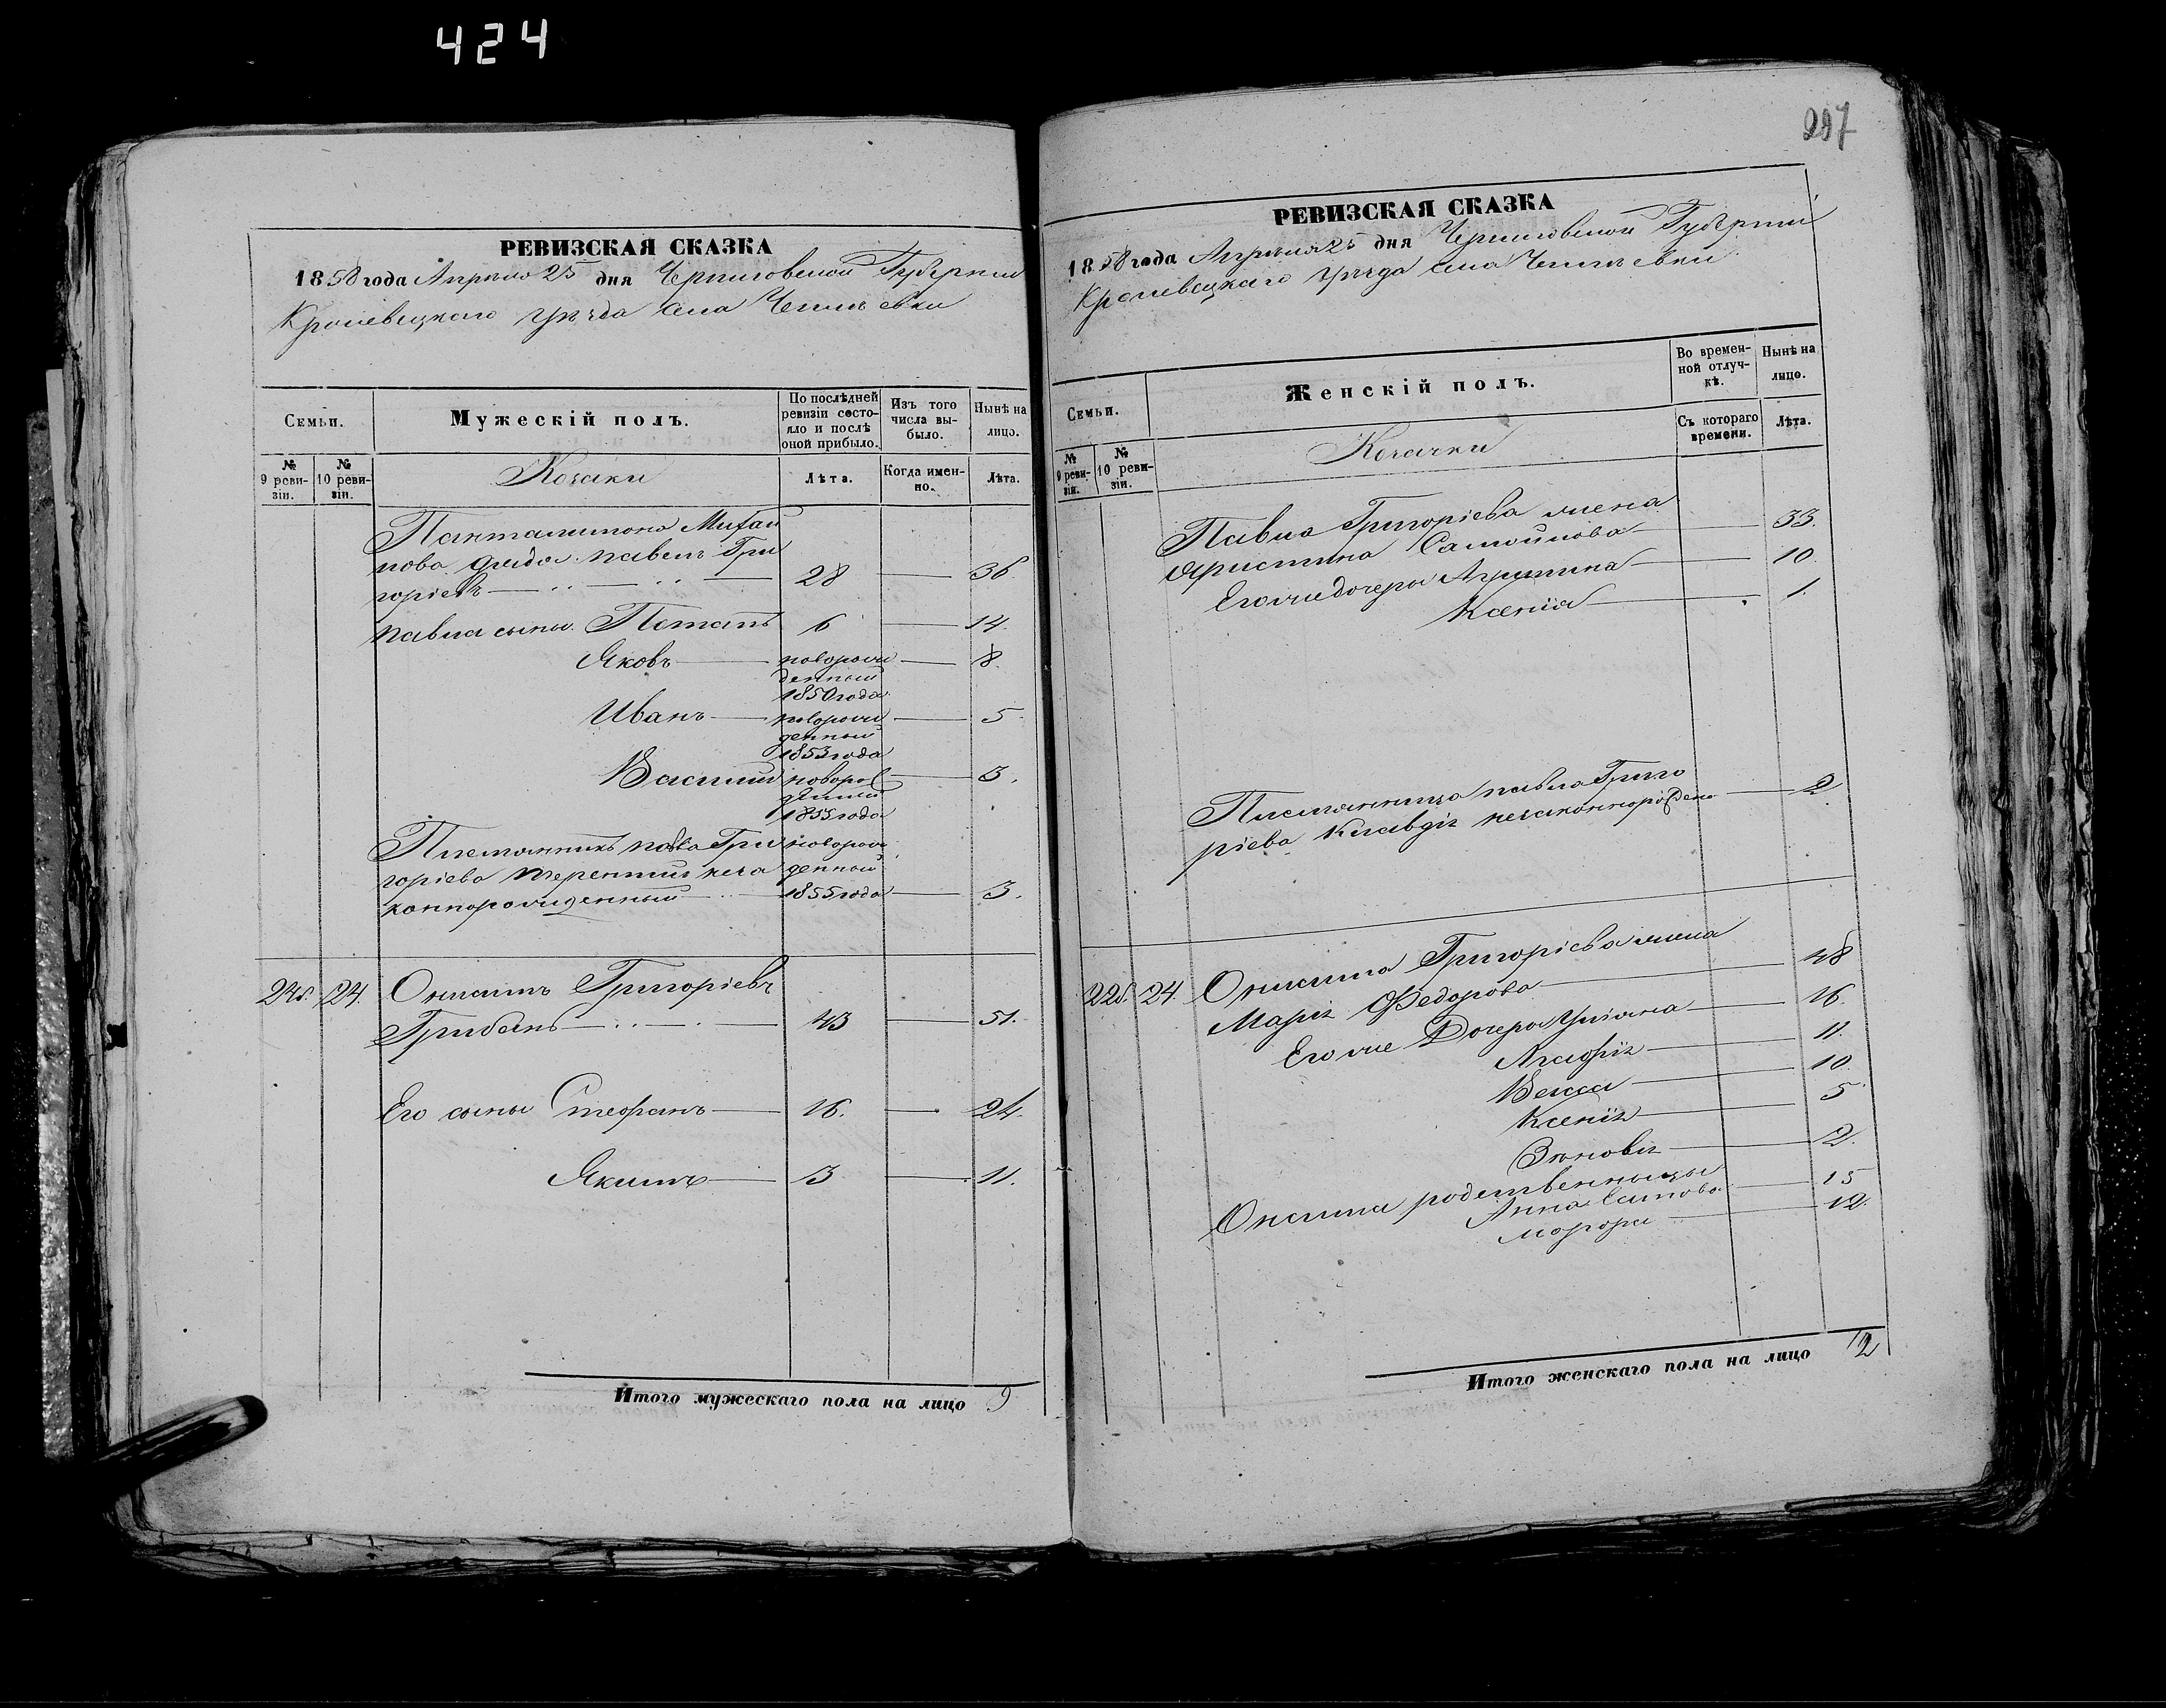 424
РЕВИЗСКАЯ СКАЗКА
1858 года Апреля 25 дня Черниговской Губернии
Кролевецкаго уезда села
Семьи.
Мужескій полъ.
По послѣдней ревизіи состояло и послѣ оной прибыло.
Изъ того числа выбыло.
Нынѣ на лицо.
№ 9 ревизіи.
№ 10 ревизіи.
Козаки
Лѣта.
Когда именно.
Лѣта.
Панталимона Михай
лова дяди павелъ Гри
горіевъ 28 36
павла сыны Потапъ 6 14
Яковъ новорож 8
денный
1850 года
Иванъ новорож 5
денный
1853 года
Василий новорож 3
денный
1855 года
Племянникъ павла Гри новорож
горіева терентий неза денный
коннорожденный 1855 года 3
24
Онисимъ Григоріевъ
Грибанъ 43 51
Его сыны Стефанъ 16 24
Якимъ 3 11
Итого мужескаго пола на лицо 9
РЕВИЗСКАЯ СКАЗКА
1858 года Апреля 25 дня Черниговской Губернии
Кролевецкаго уезда села
Семьи.
Женскій полъ.
Во временной отлучкѣ.
Нынѣ на лицо.
№ 9 ревизіи.
№ 10 ревизіи.
Козачки
Съ котораго времени.
Лѣта.
Павла Григоріева жена
Христина Самойлова 33
Его же дочери Агрипина 10
Ксенія 1
Племянница павла Григо
ріева Клавдія незаконнорожден 2
24
Онисима Григоріева жена
Марія Федорова 48
Его же Дочери Уліяна 16
Агафія 11
10
Ксенія 5
Зѣновія 2
Онисима родственницы
Анна 15
12
Итого женскаго пола на лицо 12